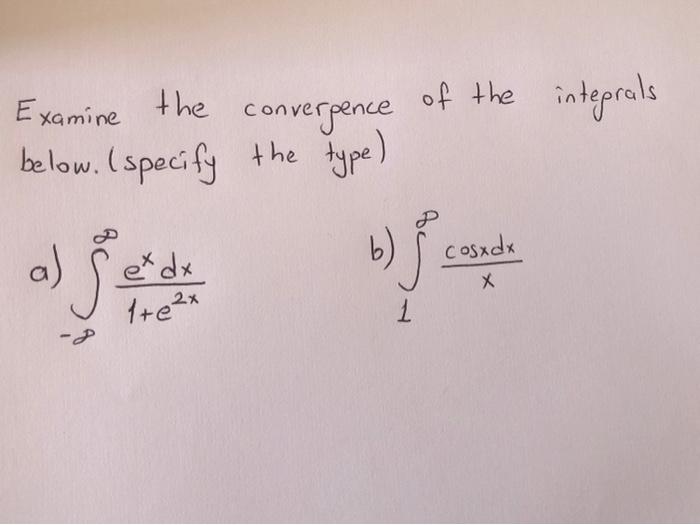 Examine the convergence of the integrals
below. (specify the type)
a) ∫_{-∞}^{∞} e^x dx / 1+e^{2x}
b) ∫_{1}^{∞} cosxdx / x